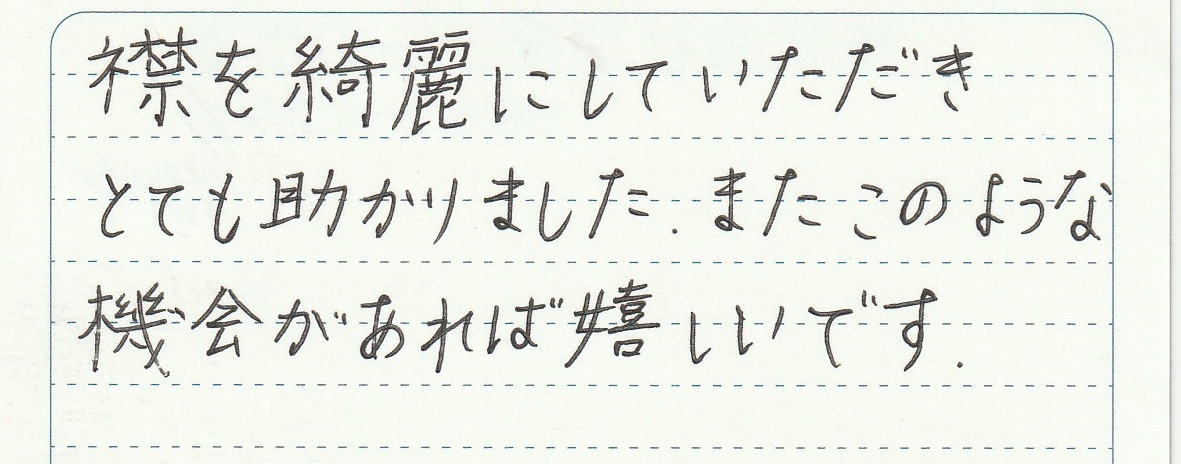 襟を綺麗にしていただき
とても助かりました.またこのような
機会があれば嬉しいです.